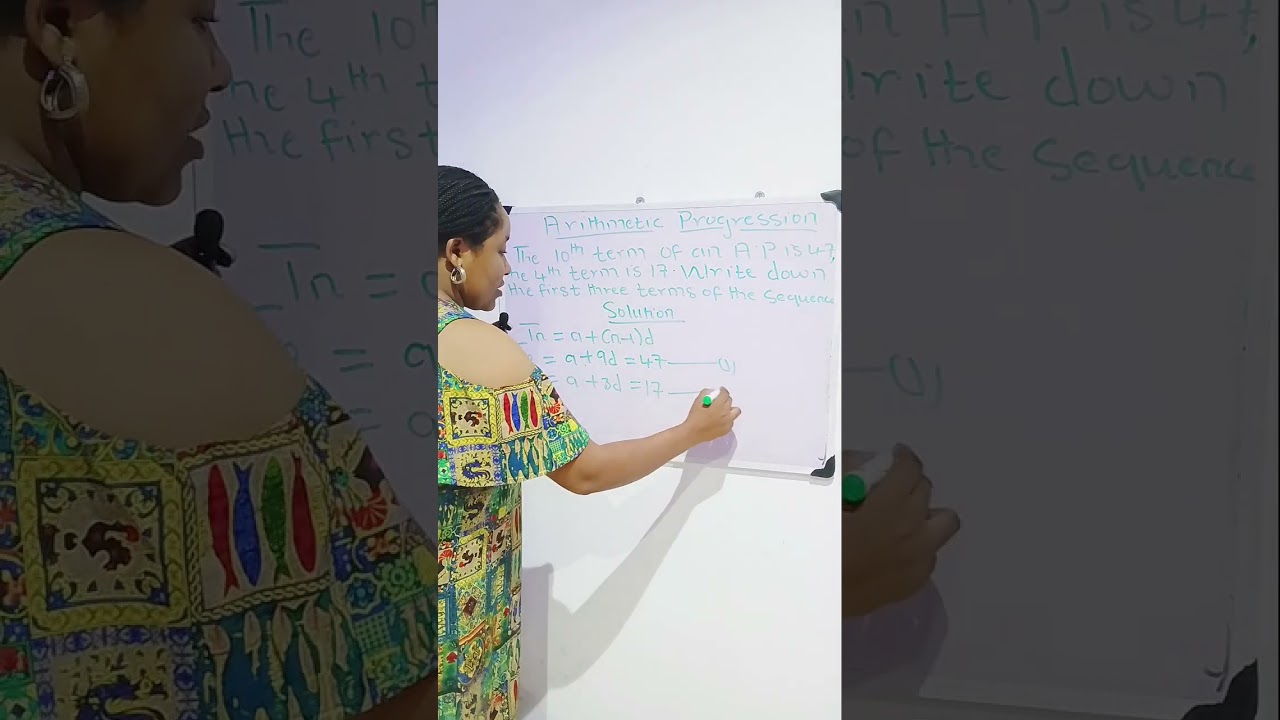 Arithmetic Progression
The 10th term of an A.P is 47,
he 4th term is 17. Write down
the first three terms of the sequence
Solution
Tn = a + (n-1)d
= a + 9d = 47 —— (1)
= a + 3d = 17 ——